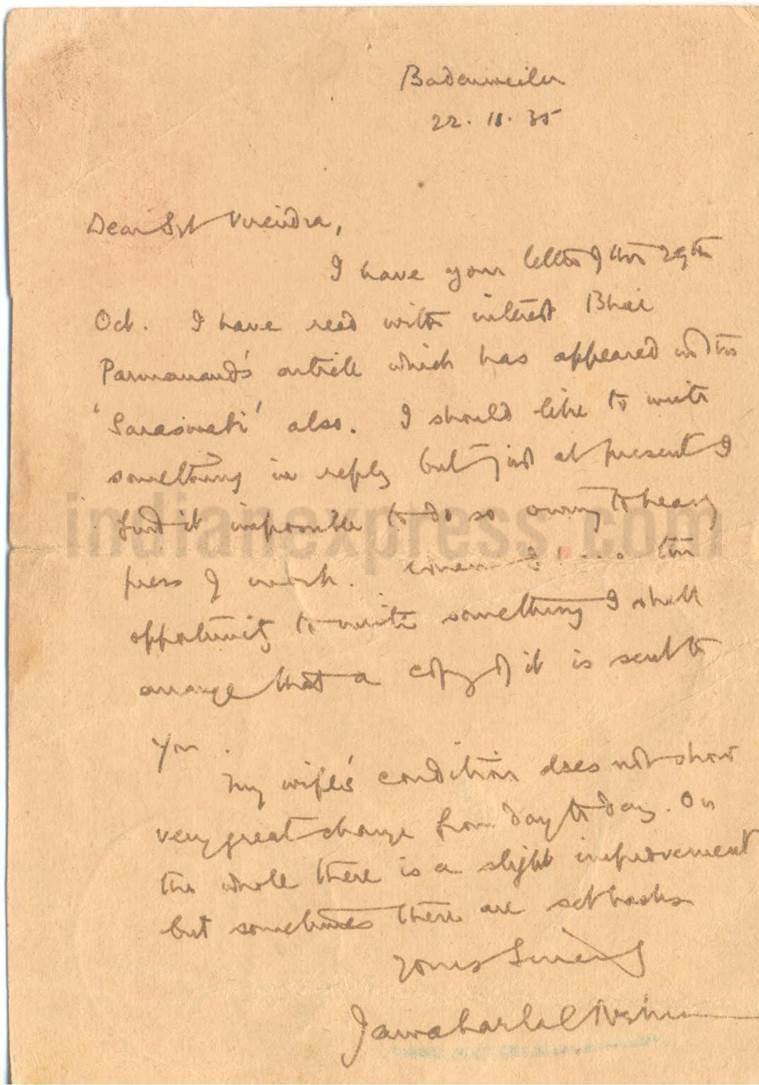 Badenweiler
22.11.35
Dear Syt Virendra,
I have your letter of the 29th
Oct. I have read with interest Bhai
Parmanand's article which has appeared in the
'Saraswati' also. I should like to write
something in reply but just at present I
find it impossible to do so owing to heavy
indianexpress.com
press of work. the
opportunity to write something I shall
arrange that a copy of it is sent to
you.
My wife's condition does not show
very great change from day to day. On
the whole there is a slight improvement
but sometimes there are setbacks
Yours Sincerely
Jawaharlal Nehru